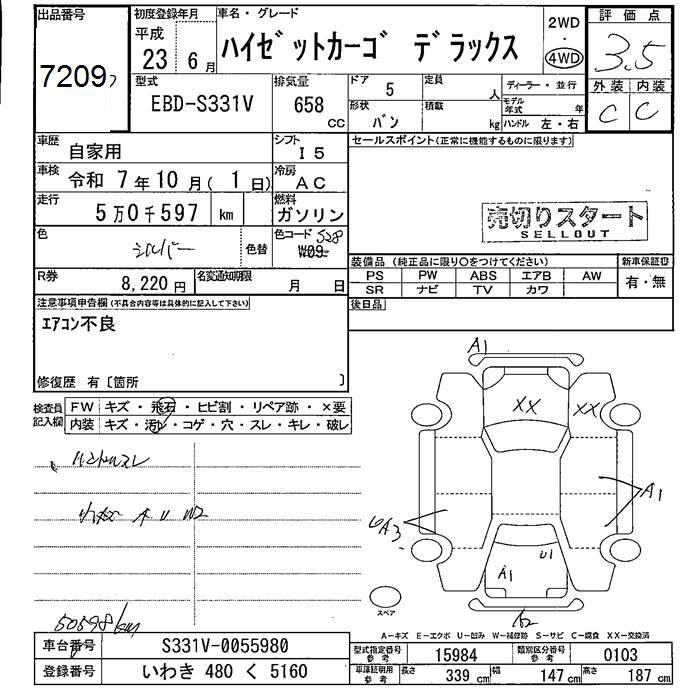 出品番号 初度登録年月 車名・グレード 2WD 評価点
7209 平成 23年 6月 ハイゼットカーゴ デラックス ・ 4WD 3.5
型式 排気量 ドア 5 定員 人 ディーラー・並行 外装 内装
EBD-S331V 658 CC 形状 バン 積載 kg モデル年式 年 ハンドル 左・右 C C
車歴 自家用 シフト I5 セールスポイント(正常に機能するものに限ります)
車検 令和 7年10月(1日) 冷房 AC
走行 5万0千597 km 燃料 ガソリン 売切りスタート
SELLOUT
色 シルバー 色替 色コード S28 W09
装備品 (純正品に限り○をつけてください) 新車保証書
R券 8,220円 名変通知期限 月 日 PS PW ABS エアB AW 有・無
SR ナビ TV カワ
注意事項申告欄(不具合内容等は具体的に記入して下さい) 後日品
エアコン不良
修復歴 有〔箇所 〕
検査員記入欄 FW キズ・飛石・ヒビ割・リペア跡・×要
内装 キズ・汚レ・コゲ・穴・スレ・キレ・破レ
ハンドルスレ
A1
XX XX
A1
A3
A1 U1
スペア
50598km
A−キズ E−エクボ U−凹み W−補修跡 S−サビ C−腐食 XX−交換済
車台番号 S331V-0055980 型式指定番号 参考 15984 類別区分番号 参考 0103
登録番号 いわき 480 く 5160 車庫証明用 参考 長さ 339 cm 幅 147 cm 高さ 187 cm